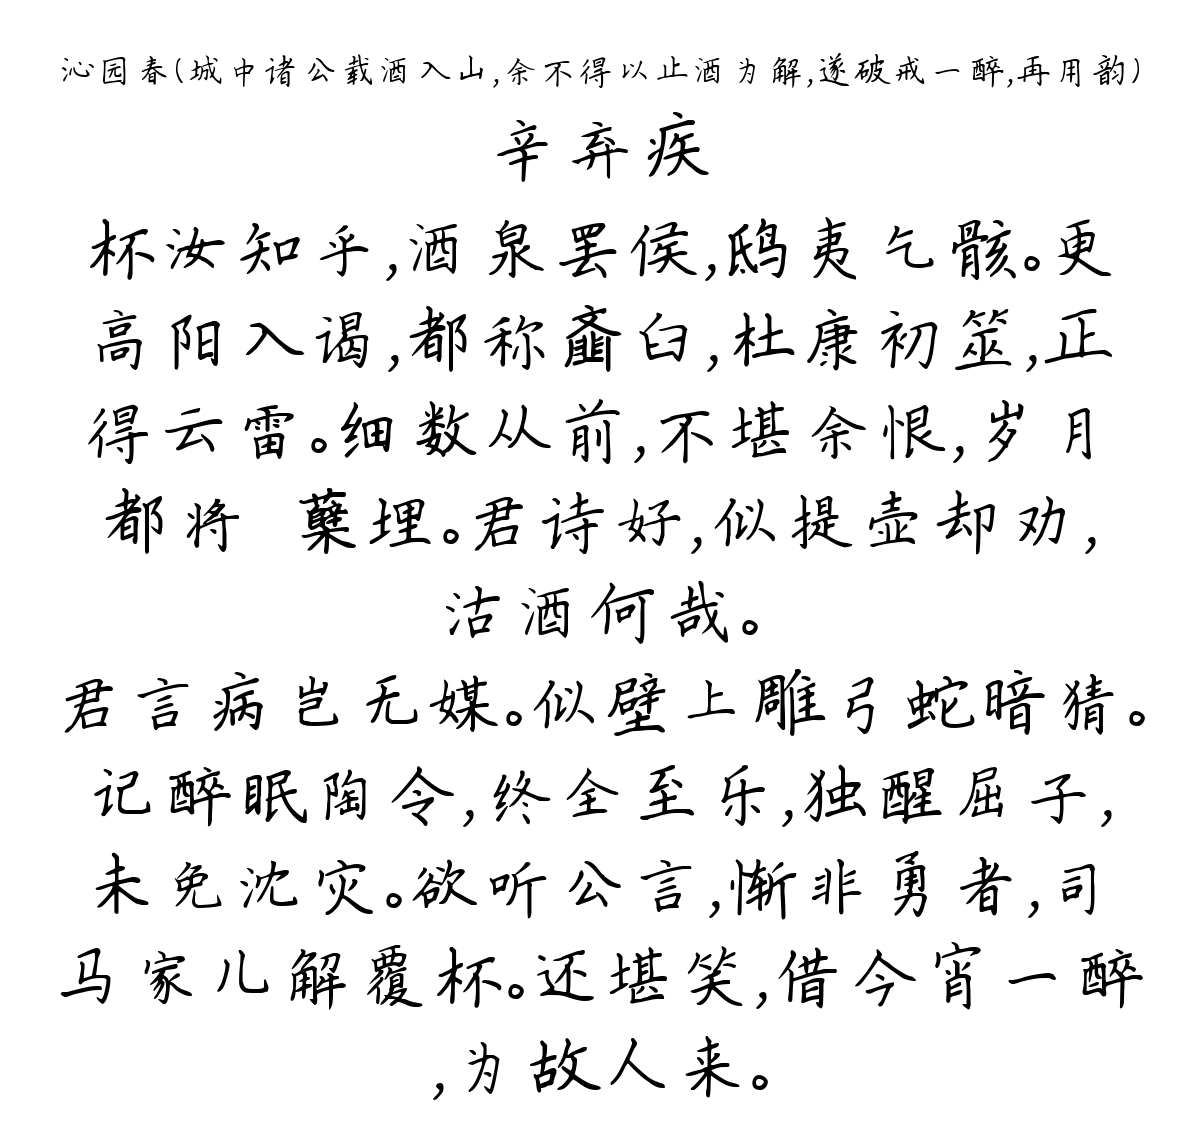 沁园春(城中诸公载酒入山,余不得以止酒为解,遂破戒一醉,再用韵)
辛弃疾
杯汝知乎,酒泉罢侯,鸱夷乞骸。更
高阳入谒,都称齑臼,杜康初筮,正
得云雷。细数从前,不堪余恨,岁月
都将 蘖埋。君诗好,似提壶却劝,
沽酒何哉。
君言病岂无媒。似壁上雕弓蛇暗猜。
记醉眠陶令,终全至乐,独醒屈子,
未免沈灾。欲听公言,惭非勇者,司
马家儿解覆杯。还堪笑,借今宵一醉
,为故人来。